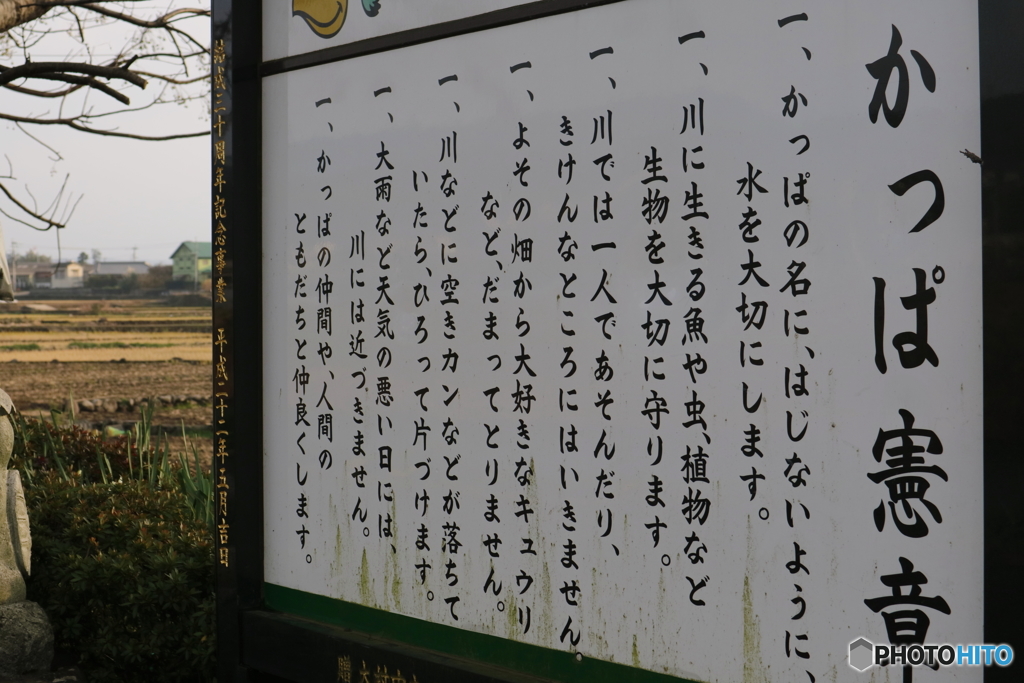 かっぱ憲章
一、かっぱの名に、はじないように、
水を大切にします。
一、川に生きる魚や虫、植物など
生物を大切に守ります。
一、川では一人であそんだり、
きけんなところにはいきません。
一、よその畑から大好きなキュウリ
など、だまってとりません。
一、川などに空きカンなどが落ちて
いたら、ひろって片づけます。
一、大雨など天気の悪い日には、
川には近づきません。
一、かっぱの仲間や、人間の
ともだちと仲良くします。
結成三十周年記念事業 平成二十二年五月吉日
贈
PHOTOHITO